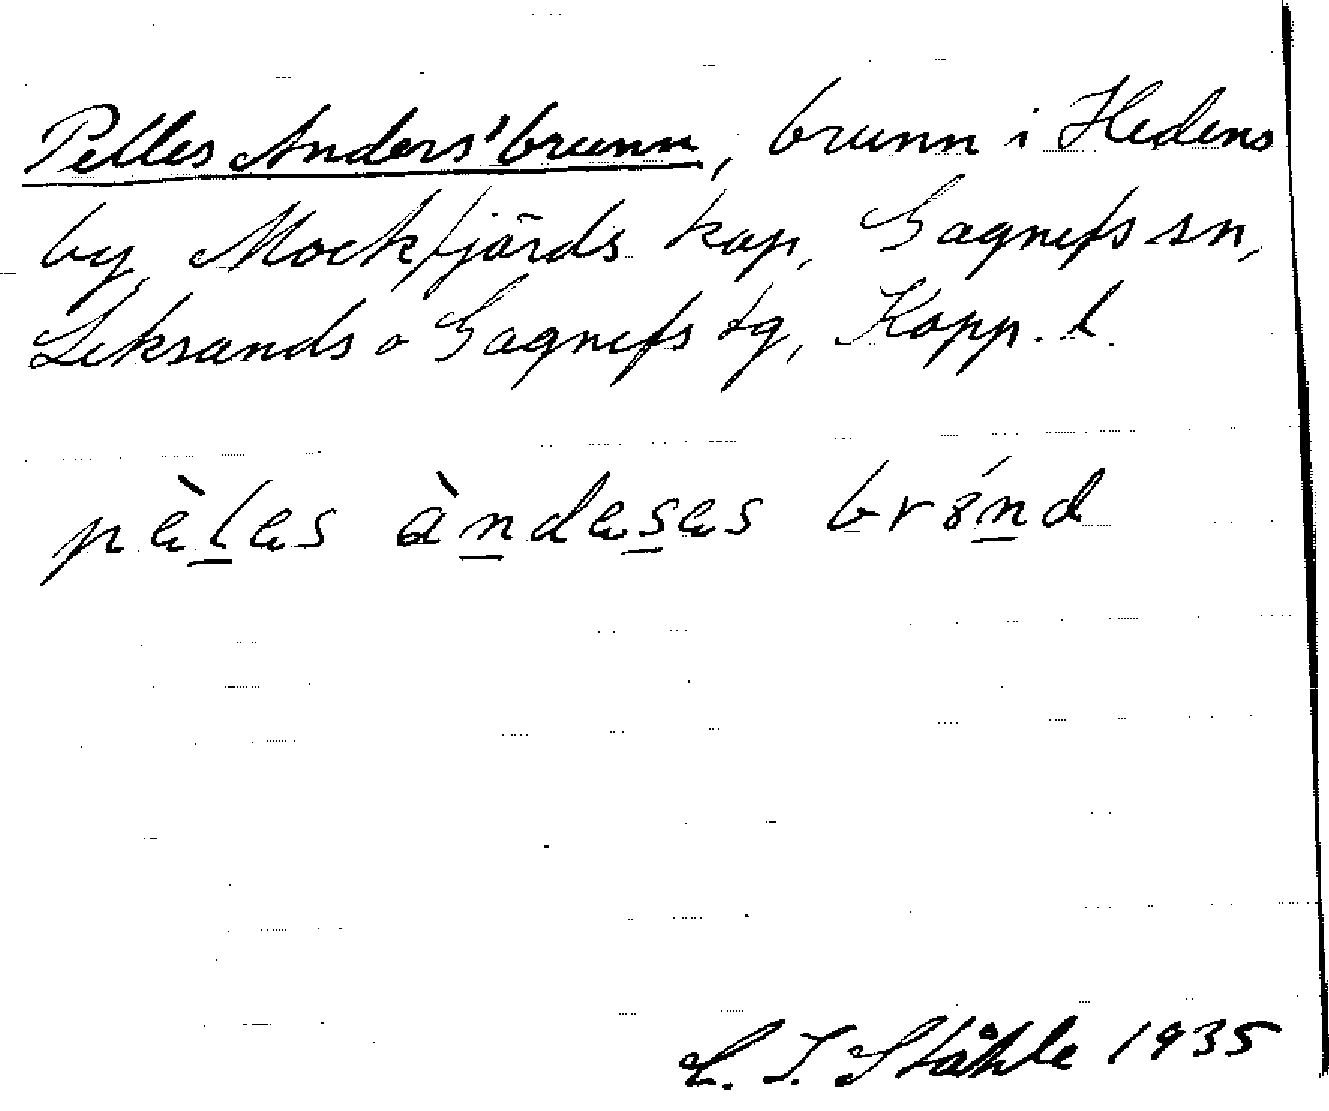 Pelles Anders' brunn, brunn i Hedens
by, Mockfjärds kap, Gagnefs sn,
Leksands o Gagnefs tg, Kopp. l.
pèles àndeses brǿnd
C. I. Ståhle 1935